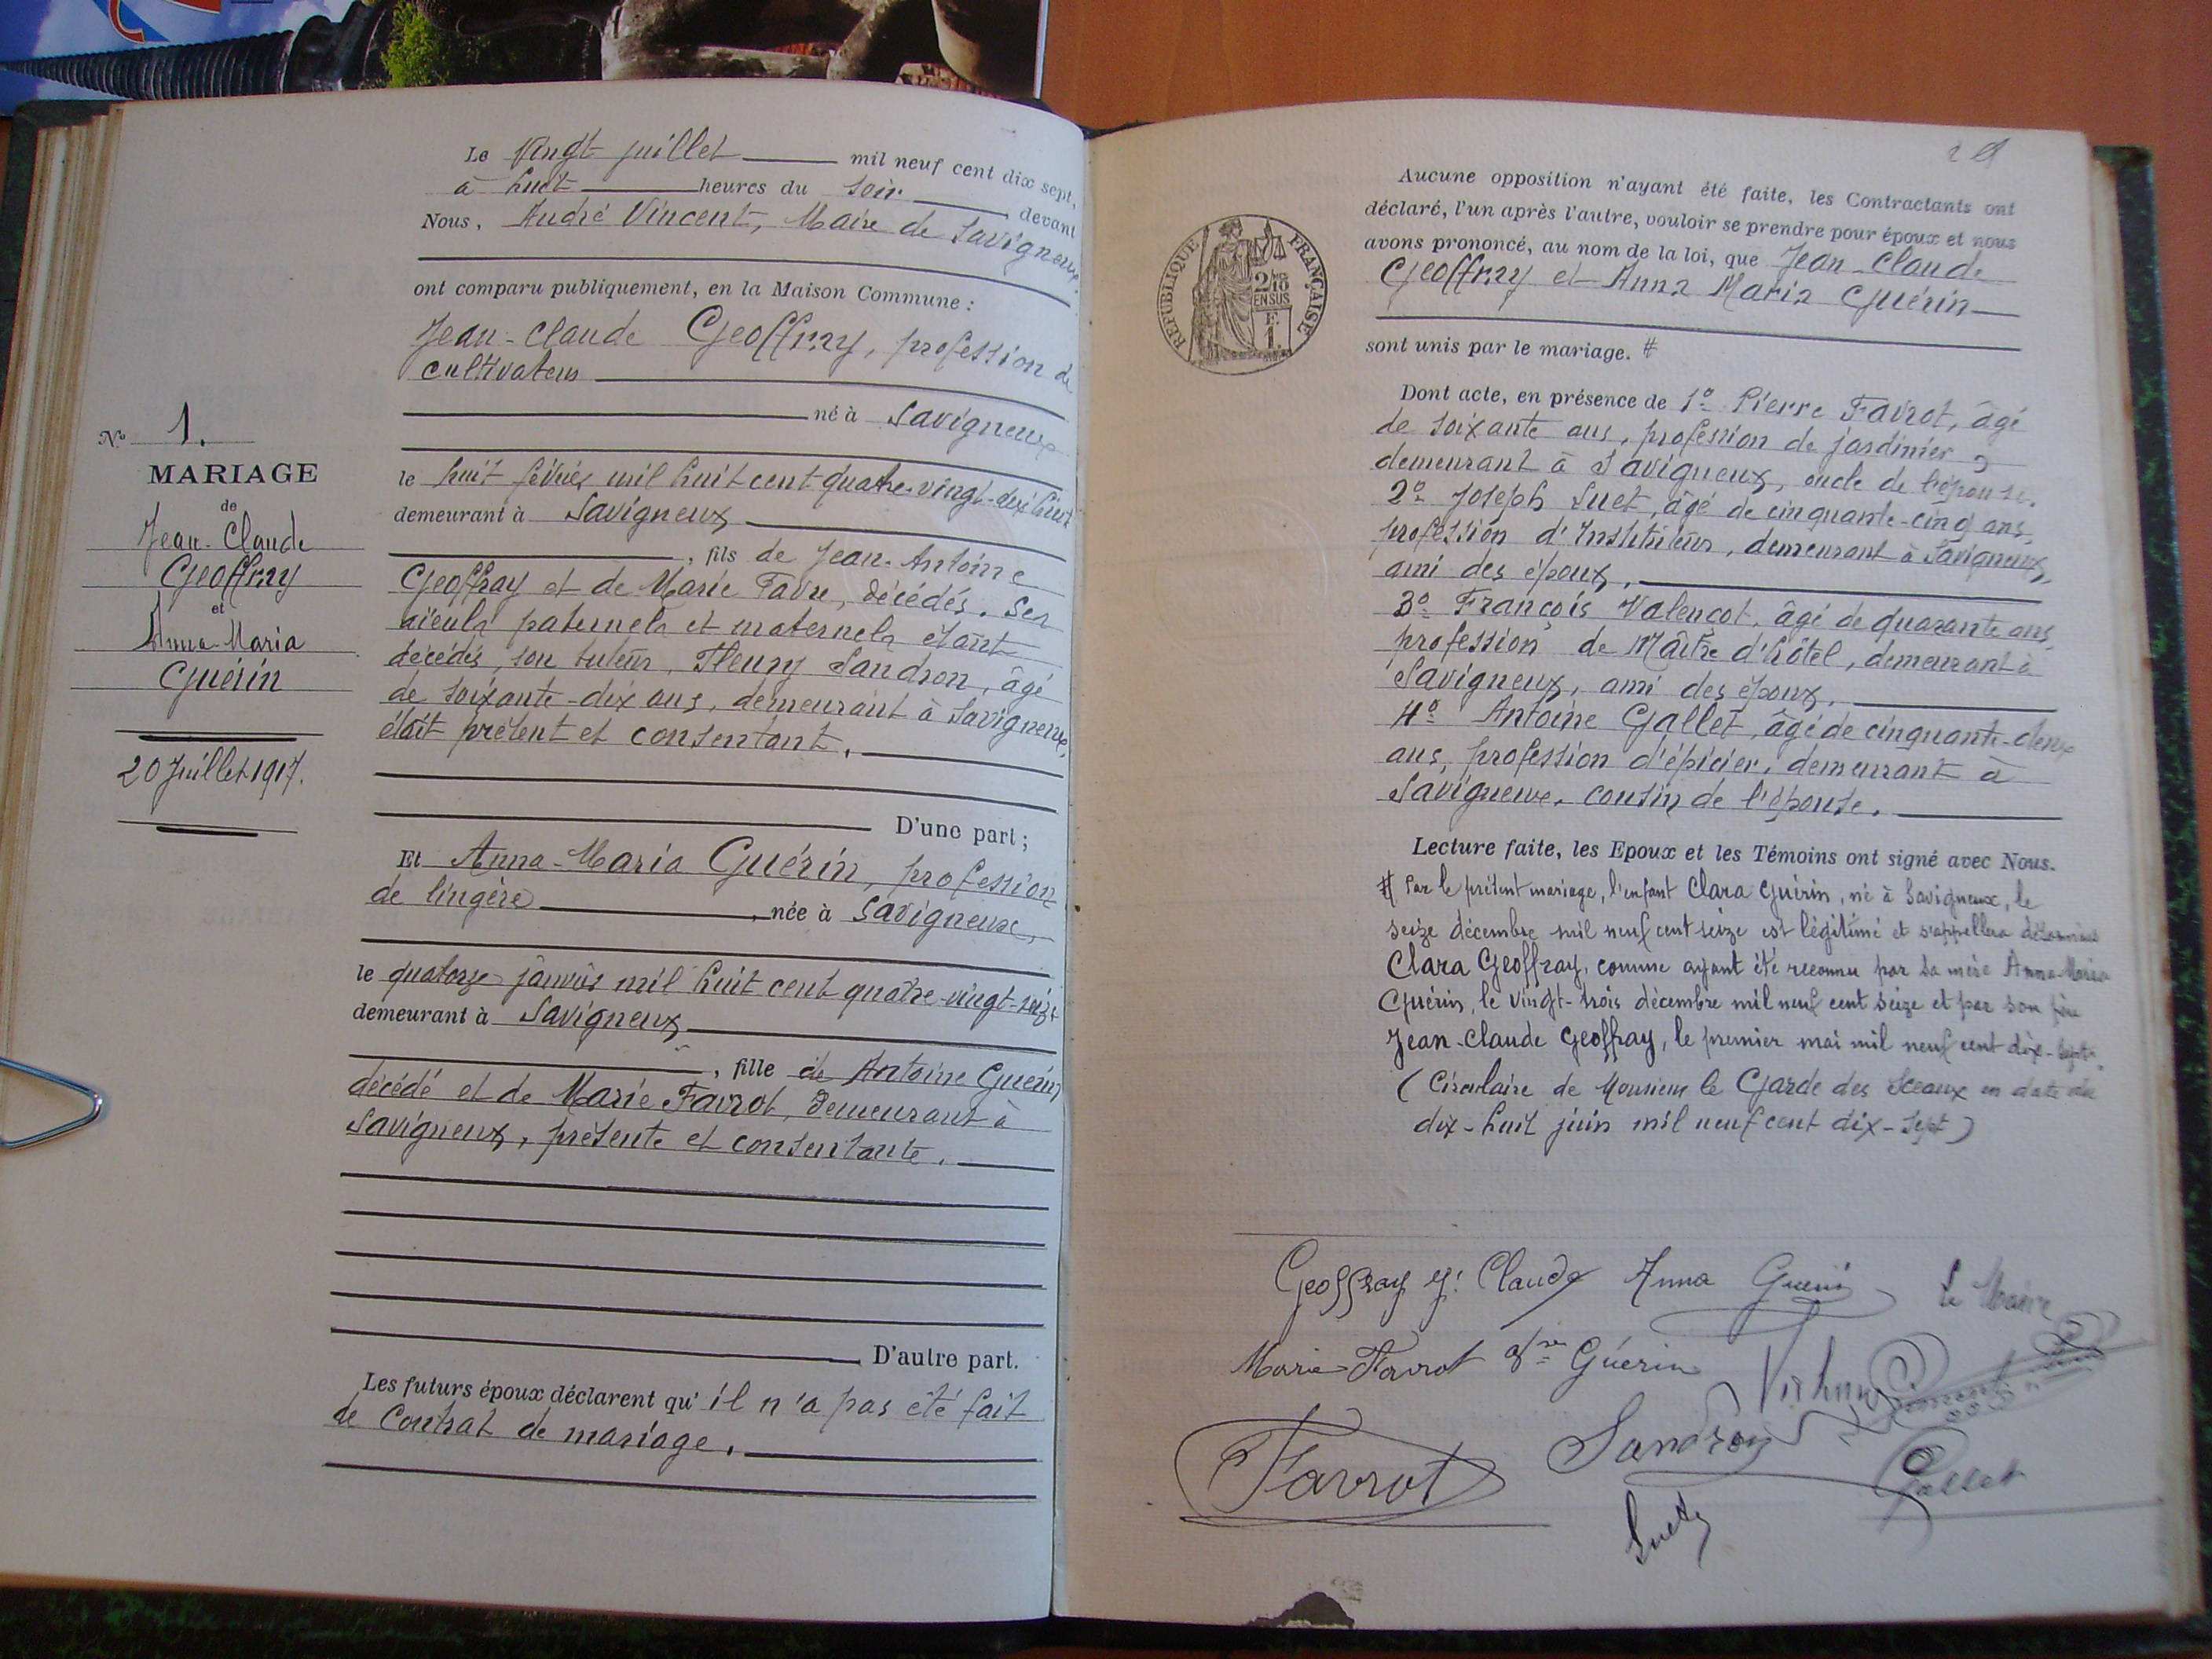 Le Vingt juillet mil neuf cent dix sept,
à huit heures du soir, devant
Nous, André Vincent, Maire de Savigneux
ont comparu publiquement, en la Maison Commune :
Jean-Claude Geoffray, profession de
cultivateur
né à Savigneux
le huit février mil huit cent quatre-vingt-dix huit
demeurant à Savigneux
, fils de Jean-Antoine
Geoffray et de Marie Favre, décédés. Ses
aïeuls paternels et maternels étant
décédés, son tuteur, Fleury Sandron, âgé
de soixante-dix ans, demeurant à Savigneux,
était présent et consentant.
D'une part ;
Et Anna-Maria Guérin, profession
de lingère, née à Savigneux,
le quatorze janvier mil huit cent quatre-vingt-seize
demeurant à Savigneux
, fille de Antoine Guérin
décédé et de Marie Favrot, demeurant à
Savigneux, présente et consentante.
D'autre part.
Les futurs époux déclarent qu'il n'a pas été fait
de Contrat de mariage.
No 1.
MARIAGE
de
Jean-Claude
Geoffray
et
Anna-Maria
Guérin
20 Juillet 1917.
Aucune opposition n'ayant été faite, les Contractants ont
déclaré, l'un après l'autre, vouloir se prendre pour époux et nous
avons prononcé, au nom de la loi, que Jean-Claude
Geoffray et Anna Maria Guérin
sont unis par le mariage. #
Dont acte, en présence de 1º Pierre Favrot, âgé
de soixante ans, profession de jardinier,
demeurant à Savigneux, oncle de l'épouse.
2º Joseph Suet, âgé de cinquante-cinq ans,
profession d'Instituteur, demeurant à Savigneux,
ami des époux.
3º François Valençot, âgé de quarante ans,
profession de Maître d'hôtel, demeurant à
Savigneux, ami des époux.
4º Antoine Gallet, âgé de cinquante-deux
ans, profession d'épicier, demeurant à
Savigneux, cousin de l'épouse.
Lecture faite, les Epoux et les Témoins ont signé avec Nous.
# Par le présent mariage, l'enfant Clara Guérin, né à Savigneux, le
seize décembre mil neuf cent seize est légitimé et s'appellera désormais
Clara Geoffray, comme ayant été reconnu par sa mère Anna-Maria
Guérin, le vingt-trois décembre mil neuf cent seize et par son père
Jean-Claude Geoffray, le premier mai mil neuf cent dix-sept.
(Circulaire de Monsieur le Garde des Sceaux en date du
dix-huit juin mil neuf cent dix-sept)
RÉPUBLIQUE FRANÇAISE
2/10
EN SUS
F.
1.
Geoffray J. Claude Anna Guérin Le Maire
Marie Favrot Vve Guérin
Vincent
Favrot Sandron Gallet
Suet